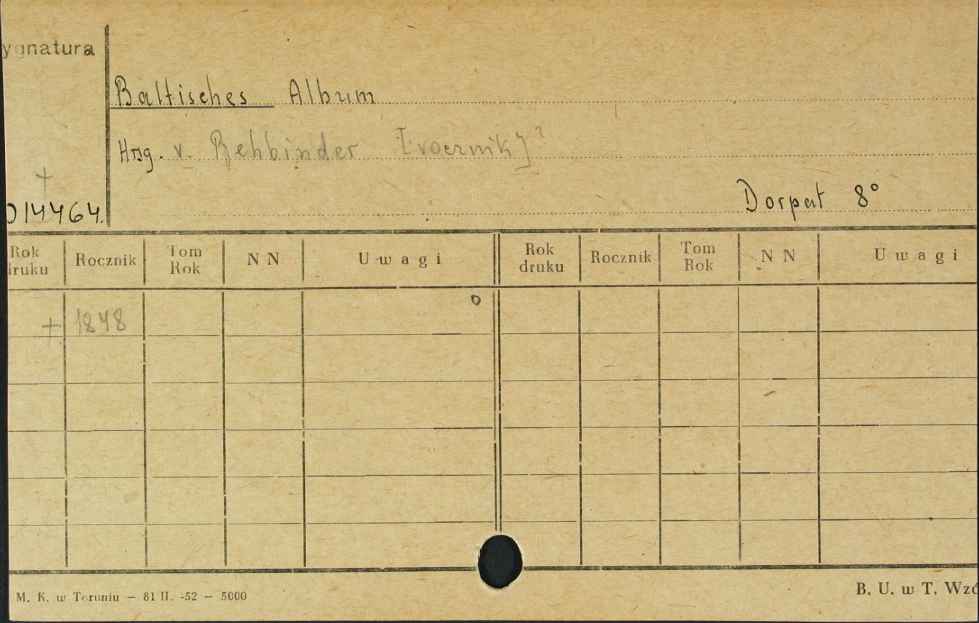 ygnatura
Baltisches Album
Hrsg. v. Rehbinder [rocznik]?
014464.
Dorpat 8°
Rok druku Rocznik Tom Rok N N Uwagi Rok druku Rocznik Tom Rok N N Uwagi
+ 1848
M. K. w Toruniu — 81 II. -52 — 5000
B. U. w T. Wzó